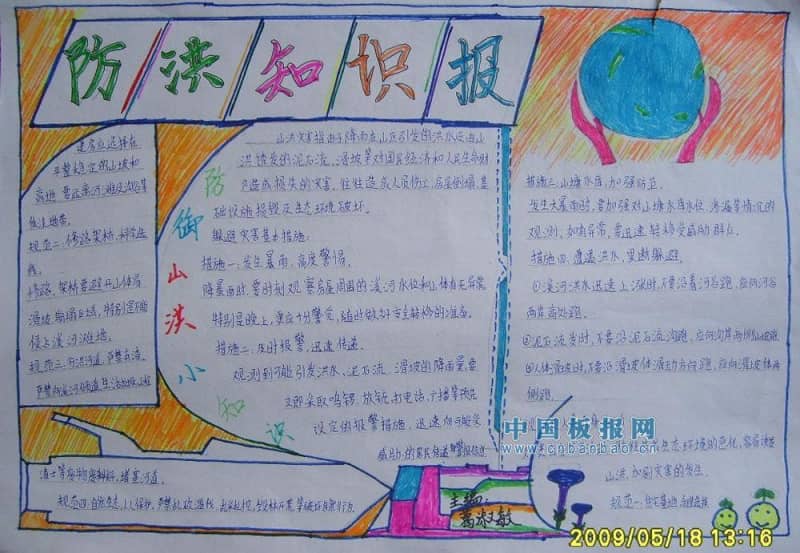 防洪知识报
建房应选择在
平整稳定的山坡和
高地
低洼地带。
规范二:修路架桥,科学选
线。
修路、架桥要避开山体易
滑坡、崩塌区域,特别是不能
侵占溪河滩地。
规范三:
渣土等废物废料,堵塞河道。
规范四:自然生态,人人保护。
防御山洪小知识
山洪灾害指由于降雨在山丘引发的洪水及由山
洪诱发的泥石流、滑坡等对国民经济和人民生命财
产造成损失的灾害。往往造成人员伤亡,房屋倒塌,基
础设施损毁及生态环境破坏。
躲避灾害基本措施:
措施一:发生暴雨,高度警惕。
降暴雨时,要时刻观察房屋周围的溪河水位和山体有无异常
特别是晚上,更应十分警觉,随时做好安全转移的准备。
措施二:及时报警,迅速传递。
观测到可能引发洪水、泥石流、滑坡的降雨量要
立即采取鸣锣、放铳、打电话、广播等预先
设定的报警措施,迅速向可能受
威胁的居民传递警报信息
措施三:山塘水库,加强防范。
发生大暴雨时,要加强对山塘水库水位、渗漏等情况的
观测,如有异常,要迅速转移受威胁群众。
措施四:遭遇洪水,果断躲避。
①溪河洪水迅速上涨时,不要沿着河谷跑,应向河谷
两岸高处跑。
②泥石流发生时,不要沿泥石流沟跑,应向沟岸两侧山坡跑
③山体滑坡时,不要沿滑坡体滑动方向跑,应向滑坡体两
侧跑。
生态环境的恶化,容易诱发
山洪,加剧灾害的发生。
规范一:住宅基地,合理选择
中国板报网
www.cnbanbao.cn
主编:
葛淑敏
2009/05/18 13:16